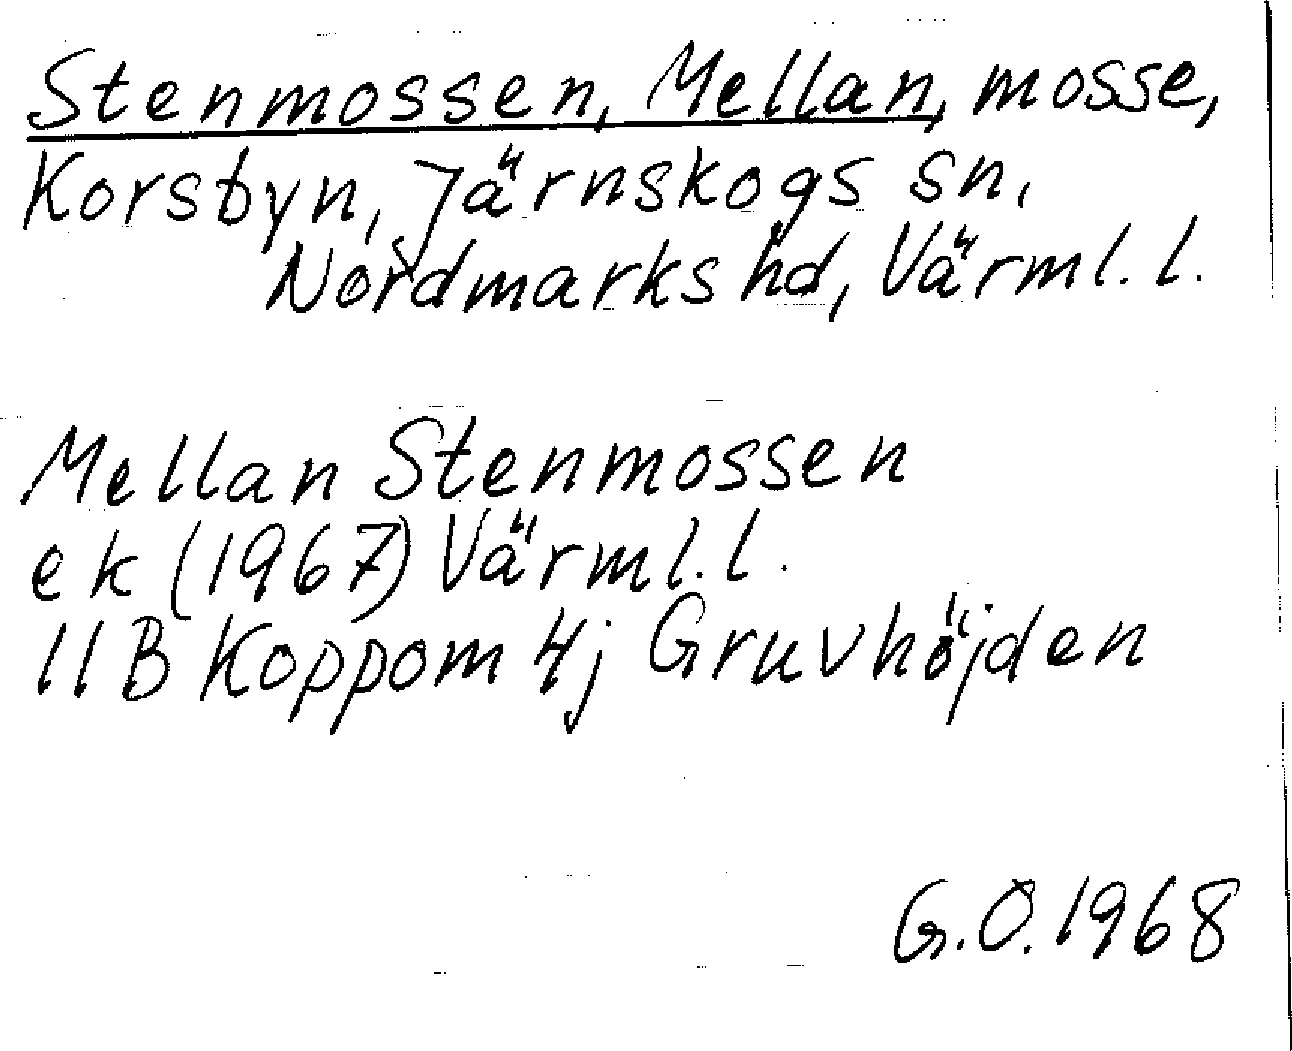 Stenmossen, Mellan, mosse,
Korsbyn, Järnskogs sn,
Nordmarks hd, Värml. l.
Mellan Stenmossen
ek (1967) Värml. l.
11B Koppom 4j Gruvhöjden
G.O. 1968